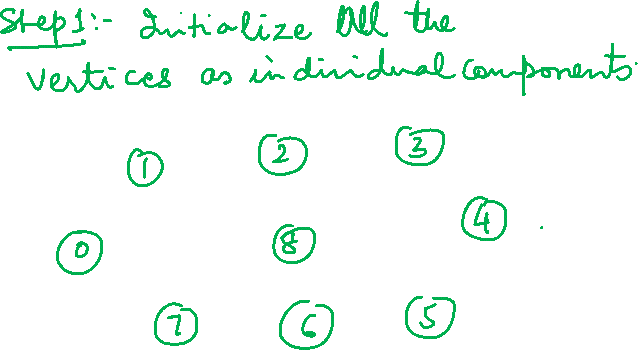 Step1:- Initialize All the
vertices as individual components.
1 2 3
4
0 8
7 6 5